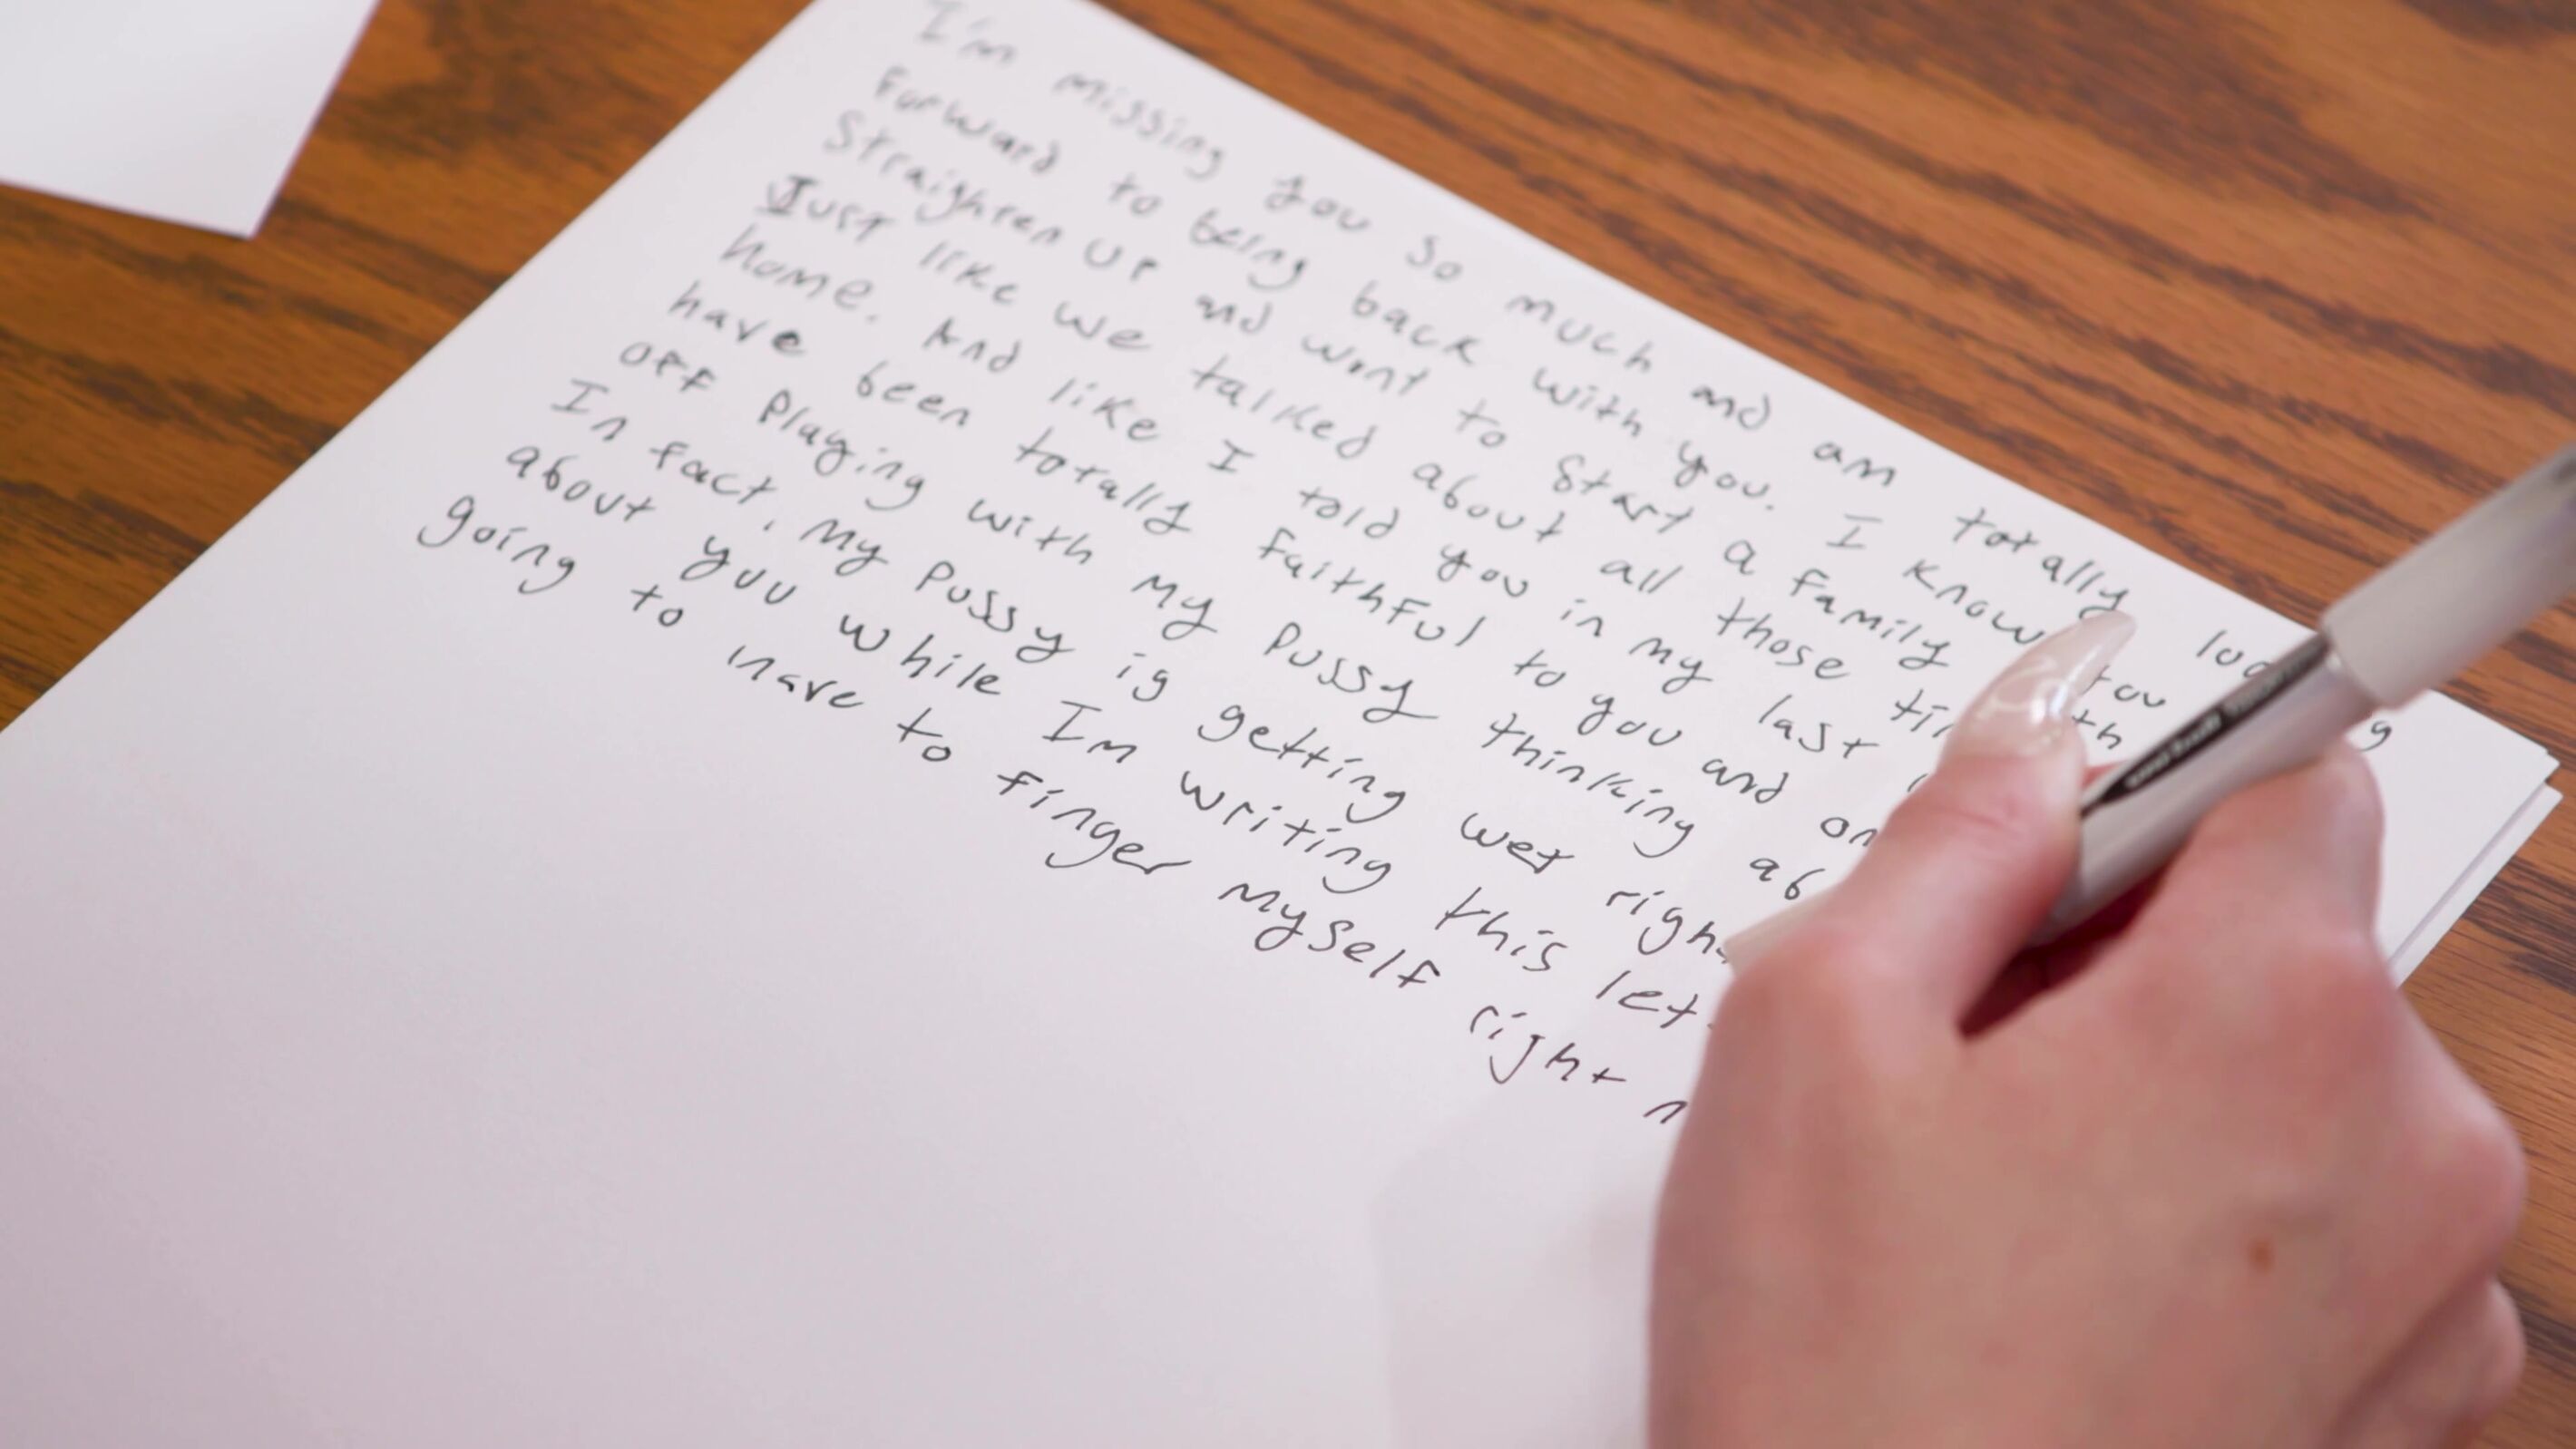 I'm missing you so much and am totally
Forward to being back with you. I know you
Straighten up and want to start a family with
Just like we talked about all those
home. And like I told you in my last
have been totally faithful to you and
off playing with my pussy thinking
In fact, my pussy is getting wet
about you while Im writing this
going to have to finger myself right